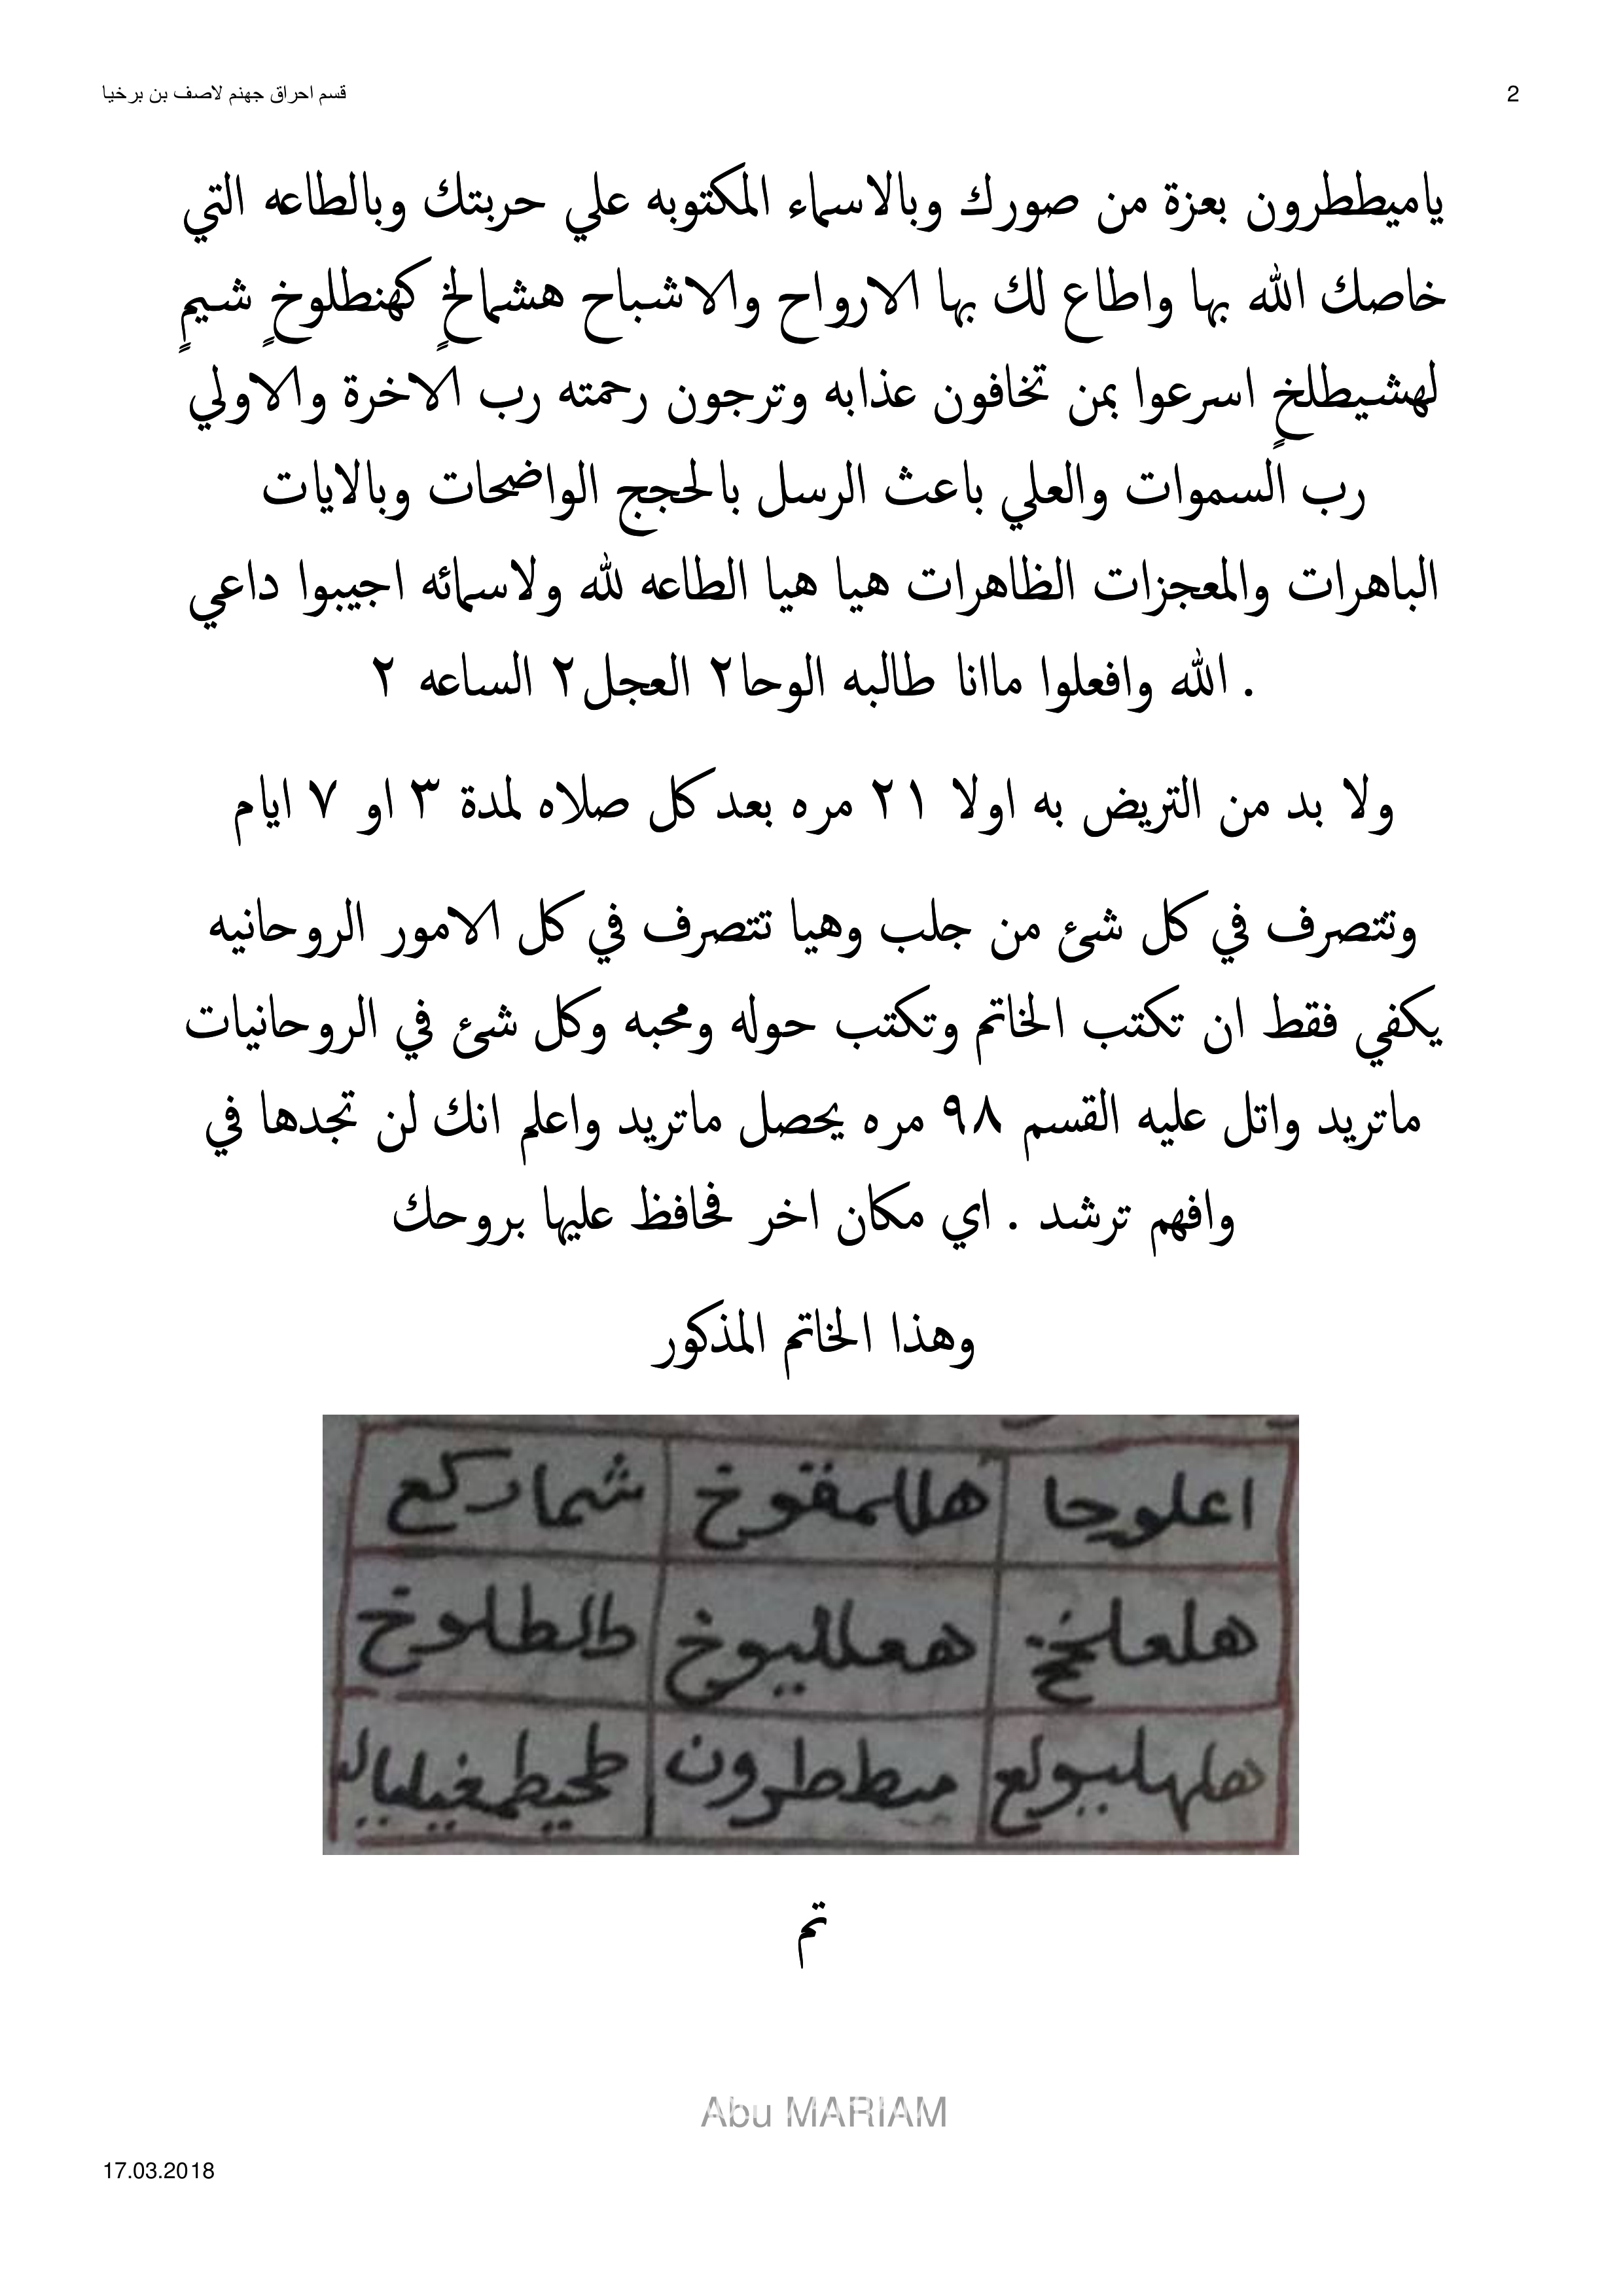 قسم احراق جهنم لاصف بن برخيا 2
ياميططرون بعزة من صورك وبالاسماء المكتوبه علي حربتك وبالطاعه التي
خاصك الله بها واطاع لك بها الارواح والاشباح هشمالخٍ كهنطلوخٍ شيمٍ
لهشيطلخٍ اسرعوا بمن تخافون عذابه وترجون رحمته رب الاخرة والاولي
رب السموات والعلي باعث الرسل بالحجج الواضحات وبالايات
الباهرات والمعجزات الظاهرات هيا هيا الطاعه لله ولاسمائه اجيبوا داعي
. الله وافعلوا ماانا طالبه الوحا٢ العجل٢ الساعه ٢
ولا بد من التريض به اولا ٢١ مره بعد كل صلاه لمدة ٣ او ٧ ايام
وتتصرف في كل شئ من جلب وهيا تتصرف في كل الامور الروحانيه
يكفي فقط ان تكتب الخاتم وتكتب حوله ومحبه وكل شئ في الروحانيات
ماتريد واتل عليه القسم ٩٨ مره يحصل ماتريد واعلم انك لن تجدها في
وافهم ترشد . اي مكان اخر فحافظ عليها بروحك
وهذا الخاتم المذكور
اعلوحا هللمفوخ شماركع
هلعلخ هعلليوخ طلطلوخ
هلهليولع ميططرون
تم
Abu MARIAM
17.03.2018